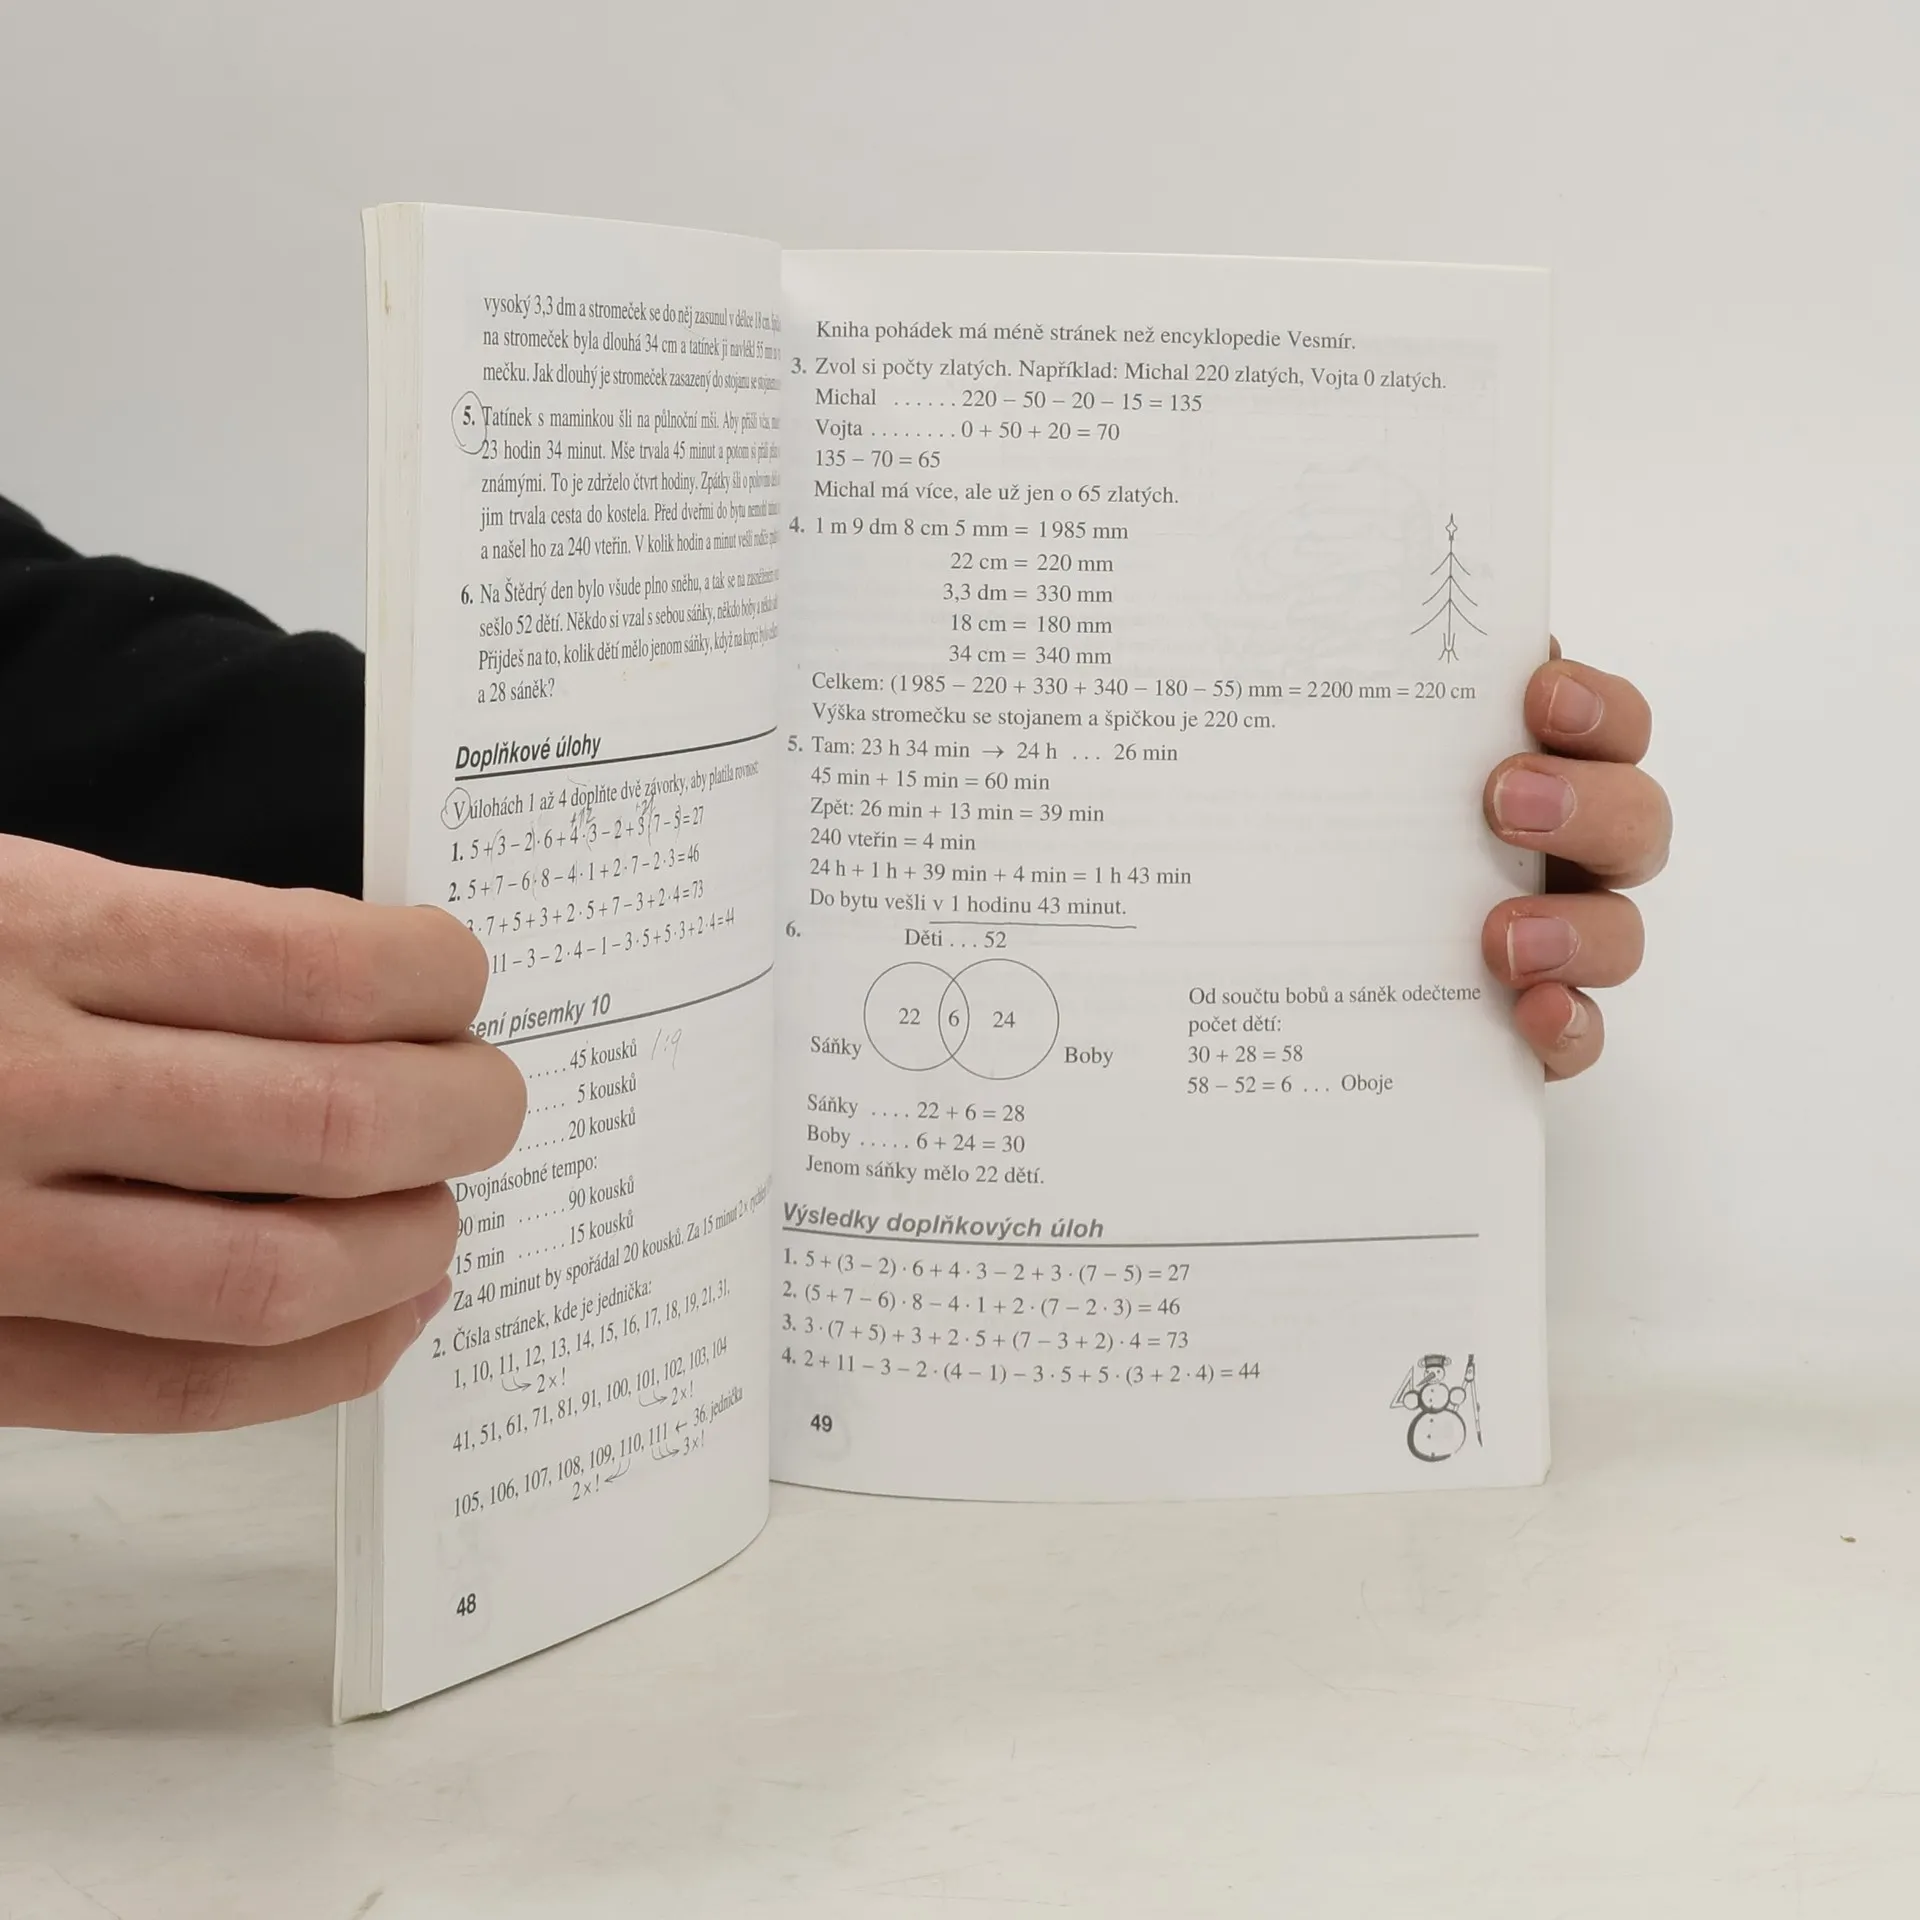 vysoký 3,3 dm a stromeček se do něj zasunul v délce 18 cm.
na stromeček byla dlouhá 34 cm a tatínek ji navlékl 55 mm
mečku. Jak dlouhý je stromeček zasazený do stojanu se
5. Tatínek s maminkou šli na půlnoční mši. Aby přišli včas,
23 hodin 34 minut. Mše trvala 45 minut a potom si přáli
známými. To je zdrželo čtvrt hodiny. Zpátky šli o polovinu
jim trvala cesta do kostela. Před dveřmi do bytu nemohl
a našel ho za 240 vteřin. V kolik hodin a minut vešli rodiče
6. Na Štědrý den bylo všude plno sněhu, a tak se na zasněženém
sešlo 52 dětí. Někdo si vzal s sebou sáňky, někdo boby a
Přijdeš na to, kolik dětí mělo jenom sáňky, když na kopci bylo
a 28 sáněk?
Doplňkové úlohy
V úlohách 1 až 4 doplňte dvě závorky, aby platila rovnost:
1. 5 + (3 – 2) · 6 + 4 · 3 – 2 + 3 (7 – 5) = 27
2. 5 + 7 – 6 · 8 – 4 · 1 + 2 · 7 – 2 · 3 = 46
3 · 7 + 5 + 3 + 2 · 5 + 7 – 3 + 2 · 4 = 73
11 – 3 – 2 · 4 – 1 – 3 · 5 + 5 · 3 + 2 · 4 = 44
šení písemky 10
..... 45 kousků 1:9
..... 5 kousků
...... 20 kousků
Dvojnásobné tempo:
90 min ...... 90 kousků
15 min ...... 15 kousků
Za 40 minut by spořádal 20 kousků. Za 15 minut 2×
2. Čísla stránek, kde je jednička:
1, 10, 11, 12, 13, 14, 15, 16, 17, 18, 19, 21, 31,
2×!
41, 51, 61, 71, 81, 91, 100, 101, 102, 103, 104
2×!
105, 106, 107, 108, 109, 110, 111 ← 36. jednička
2×! 3×!
48
Kniha pohádek má méně stránek než encyklopedie Vesmír.
3. Zvol si počty zlatých. Například: Michal 220 zlatých, Vojta 0 zlatých.
Michal ...... 220 – 50 – 20 – 15 = 135
Vojta ........ 0 + 50 + 20 = 70
135 – 70 = 65
Michal má více, ale už jen o 65 zlatých.
4. 1 m 9 dm 8 cm 5 mm = 1 985 mm
22 cm = 220 mm
3,3 dm = 330 mm
18 cm = 180 mm
34 cm = 340 mm
Celkem: (1 985 – 220 + 330 + 340 – 180 – 55) mm = 2 200 mm = 220 cm
Výška stromečku se stojanem a špičkou je 220 cm.
5. Tam: 23 h 34 min → 24 h ... 26 min
45 min + 15 min = 60 min
Zpět: 26 min + 13 min = 39 min
240 vteřin = 4 min
24 h + 1 h + 39 min + 4 min = 1 h 43 min
Do bytu vešli v 1 hodinu 43 minut.
6. Děti ... 52
22 6 24
Sáňky Boby
Od součtu bobů a sáněk odečteme
počet dětí:
30 + 28 = 58
58 – 52 = 6 ... Oboje
Sáňky .... 22 + 6 = 28
Boby ..... 6 + 24 = 30
Jenom sáňky mělo 22 dětí.
Výsledky doplňkových úloh
1. 5 + (3 – 2) · 6 + 4 · 3 – 2 + 3 · (7 – 5) = 27
2. (5 + 7 – 6) · 8 – 4 · 1 + 2 · (7 – 2 · 3) = 46
3. 3 · (7 + 5) + 3 + 2 · 5 + (7 – 3 + 2) · 4 = 73
4. 2 + 11 – 3 – 2 · (4 – 1) – 3 · 5 + 5 · (3 + 2 · 4) = 44
49